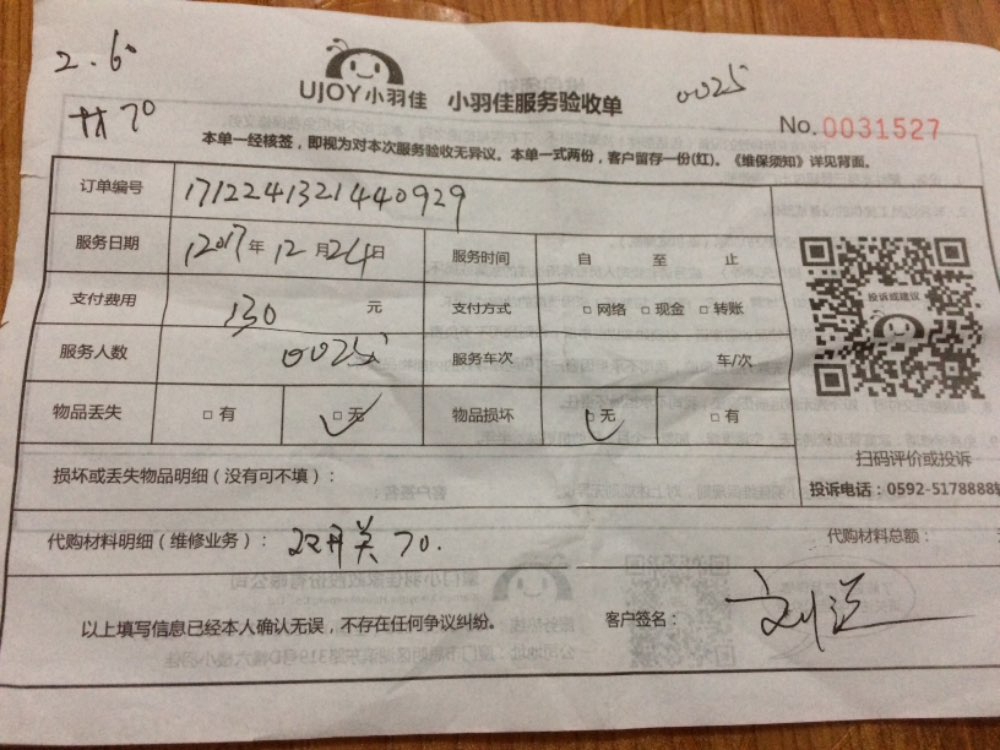 2.6
材70
UJOY小羽佳 小羽佳服务验收单
0025
No.0031527
本单一经核签，即视为对本次服务验收无异议。本单一式两份，客户留存一份(红)。《维保须知》详见背面。
订单编号 1712241321440929
服务日期 2017年12月24日 服务时间 自 至 止
支付费用 130 元 支付方式 □网络 □现金 □转账
服务人数 0025 服务车次 车/次
物品丢失 □有 □无 物品损坏 □无 □有
投诉或建议
扫码评价或投诉
投诉电话：0592-5178888转
损坏或丢失物品明细（没有可不填）：
代购材料明细（维修业务）： 双开关 70. 代购材料总额：
以上填写信息已经本人确认无误，不存在任何争议纠纷。 客户签名：